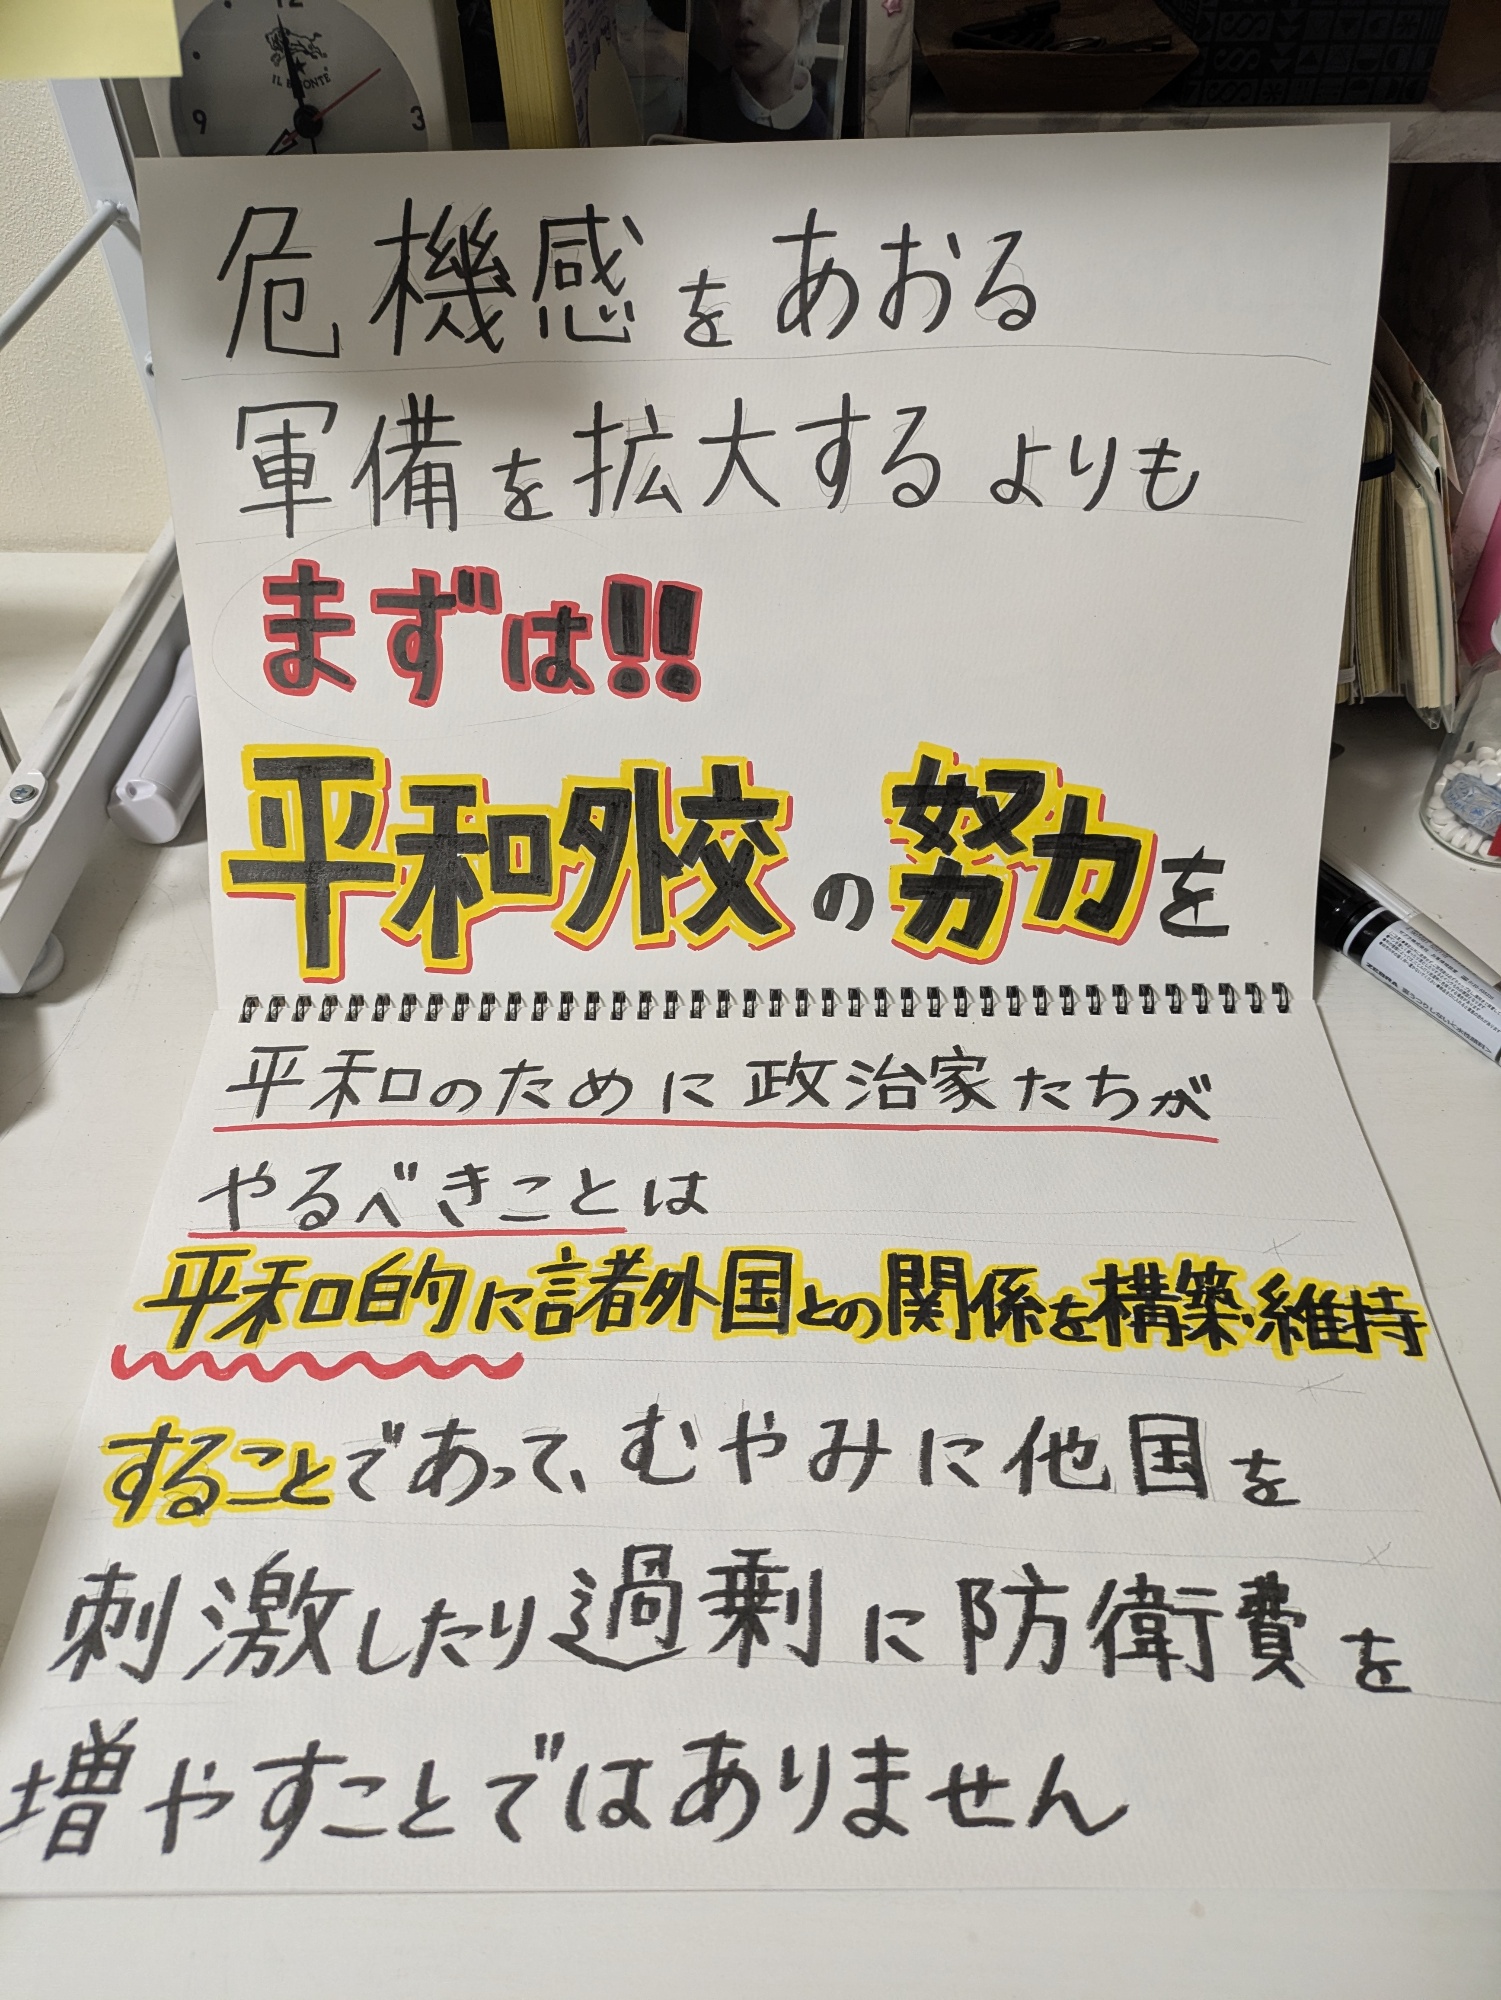 12
9
3
IL BISONTE
危機感をあおる
軍備を拡大するよりも
まずは!!
平和外交の努力を
平和のために政治家たちが
やるべきことは
平和的に諸外国との関係を構築・維持
することであって、むやみに他国を
刺激したり過剰に防衛費を
増やすことではありません
ZEBRA